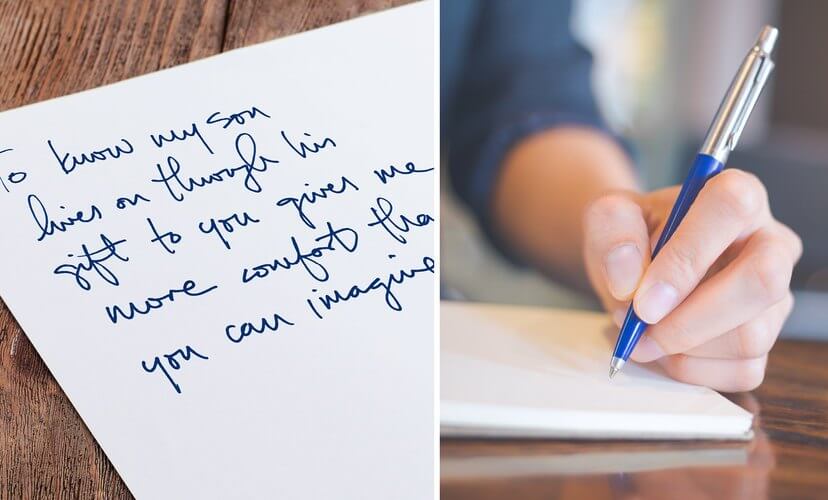 To know my son
lives on through his
gift to you gives me
more comfort tha
you can imagine